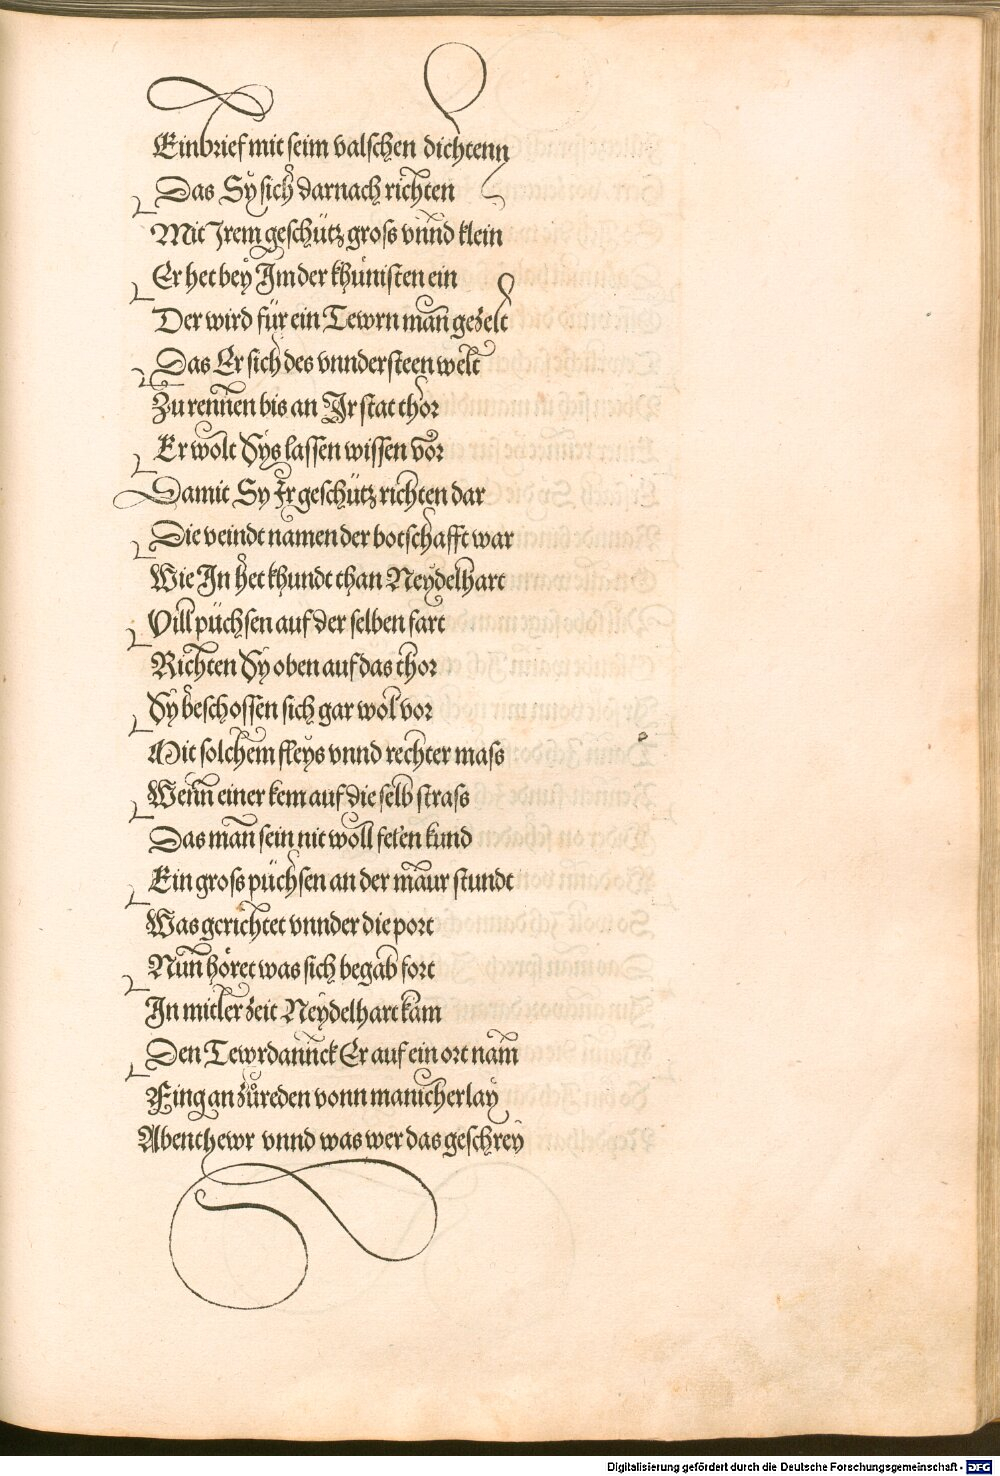 Ein brief mit seim valschen dichtenn
Das Sÿ sich darnach richten
Mit Irem geschütz gross vnnd klein
Er het beÿ Im der khünisten ein
Der wird für ein Tewrn man gezelt
Das Er sich des vnndersteen welt
Zu rennen bis an Ir stat thor
Er wolt Sÿs lassen wissen vor
Damit Sy Ir geschütz richten dar
Die veindt namen der botschafft war
Wie In het khundt than Neÿdelhart
Vill püchsen auf der selben fart
Richten Sy oben auf das thor
Sÿ beschossen sich gar wol vor
Mit solchem fleÿs vnnd rechter mass
Wenn einer kem auf die selb strass
Das man sein nit woll felen kund
Ein gross püchsen an der maur stundt
Was gerichtet vnnder die port
Nun höret was sich begab fort
In mitler zeit Neÿdelhart kam
Den Tewrdannck Er auf ein ort nam
Fing an zůreden vonn manicherlaÿ
Abenthewr vnnd was wer das geschreÿ
Digitalisierung gefördert durch die Deutsche Forschungsgemeinschaft - DFG